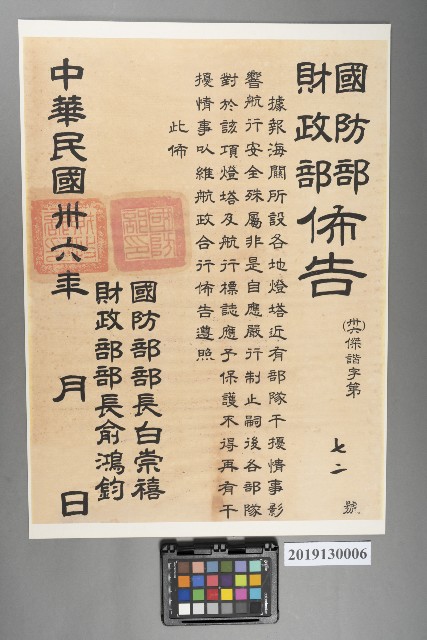 國防部
財政部
佈告
(卅六)傑諧字第 七二 號
據報海關所設各地燈塔近有部隊干擾情事影
響航行安全殊屬非是自應嚴行制止嗣後各部隊
對於該項燈塔及航行標誌應予保護不得再有干
擾情事以維航政合行佈告遵照
此佈
國防部部長白崇禧
財政部部長俞鴻鈞
中華民國卅六年 月 日
2019130006